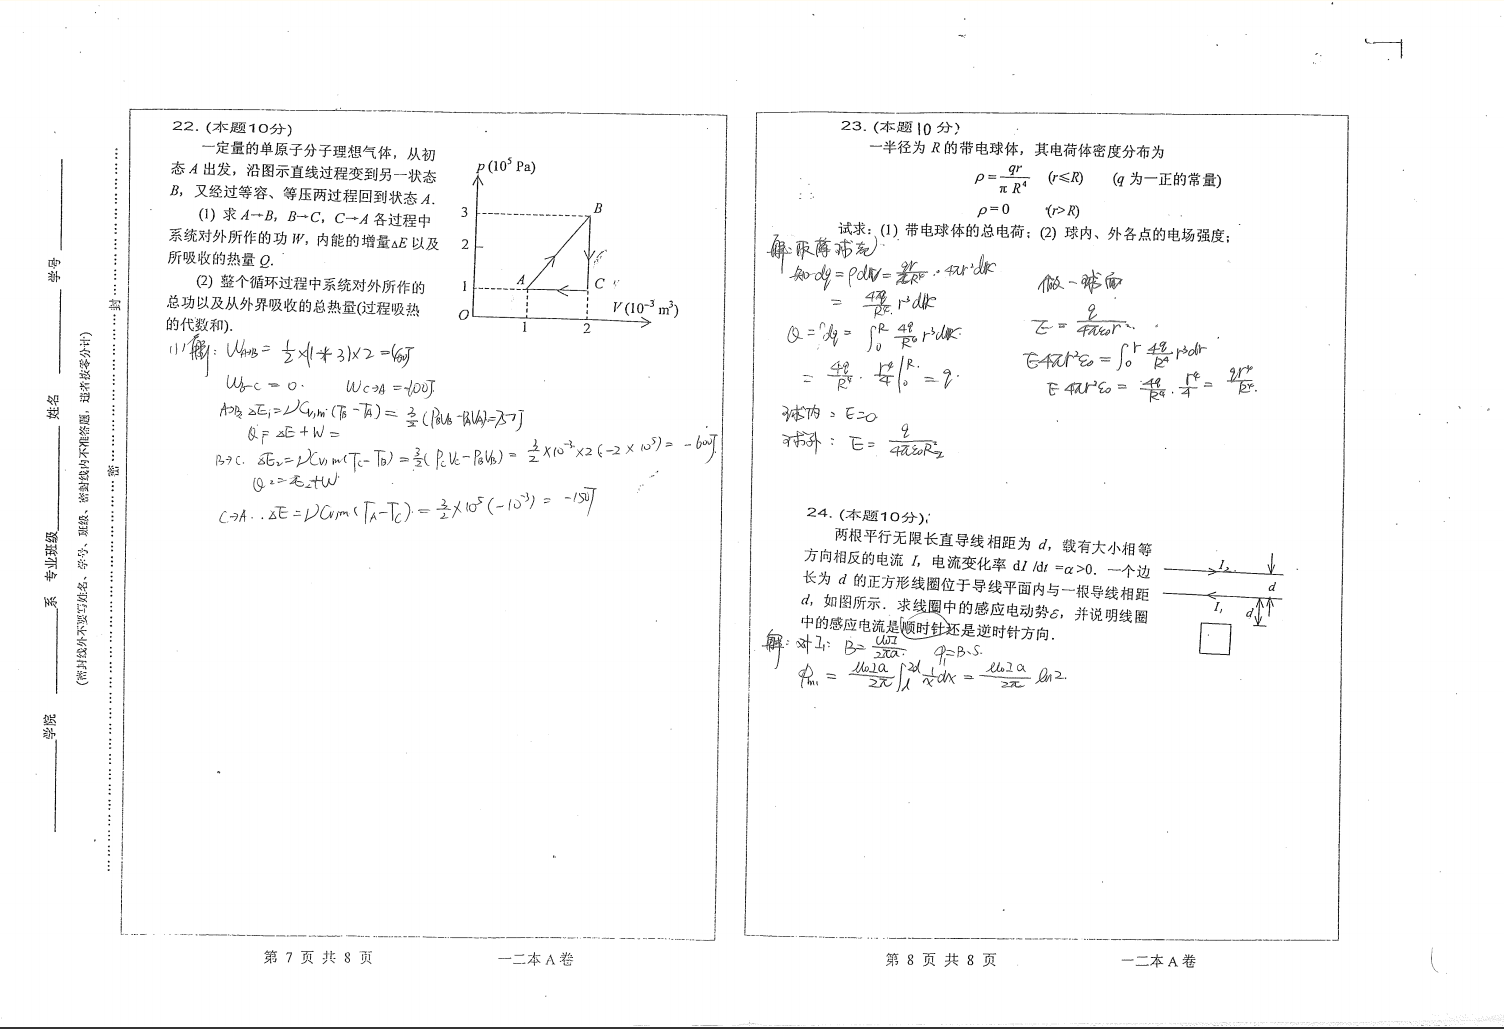 学号
姓名
专业班级
系
学院
(密封线外不要写姓名、学号、班级、密封线内不准答题，违者按零分计)
封
密
22.(本题10分)
一定量的单原子分子理想气体，从初
态 A 出发，沿图示直线过程变到另一状态
B，又经过等容、等压两过程回到状态 A.
(1) 求 A→B，B→C，C→A 各过程中
系统对外所作的功 W，内能的增量△E 以及
所吸收的热量 Q.
(2) 整个循环过程中系统对外所作的
总功以及从外界吸收的总热量(过程吸热
的代数和).
p (10⁵ Pa)
3
B
2
1
A
C
O
1
2
V (10⁻³ m³)
(1)解: W_{A→B} = 1/2 ×(1+3)×2 =400J
W_{B→C} = 0. W_{C→A} = -200J
A→B △E₁=νC_{v,m}(T_B-T_A) = 3/2 (P_BV_B-P_AV_A)=750J
Q₁= △E+W =
B→C. △E₂=νC_{v,m}(T_C-T_B) = 3/2 (P_CV_C-P_BV_B) = 3/2 ×10⁻³×2(-2×10⁵) = -600J
Q₂=E₂+W
C→A. △E=νC_{v,m}(T_A-T_C) = 3/2 ×10⁵(-10⁻³) = -150J
第 7 页 共 8 页
一二本 A 卷
23.(本题10 分)
一半径为 R 的带电球体，其电荷体密度分布为
ρ= qr/πR⁴ (r≤R) (q 为一正的常量)
ρ=0 (r>R)
试求：(1) 带电球体的总电荷；(2) 球内、外各点的电场强度；
解:取薄球壳
知 dq=ρdV= qr/πR⁴ · 4πr²dr
= 4q/R⁴ r³dr
Q = ∫dq = ∫₀ᴿ 4q/R⁴ r³dr
= 4q/R⁴ · r⁴/4 |₀ᴿ = q.
做一球面
E = q/4πε₀r².
E4πr²ε₀ = ∫₀ʳ 4q/R⁴ r³dr
E 4πr²ε₀ = 4q/R⁴ · r⁴/4 = qr⁴/R⁴.
球内: E=0
球外: E= q/4πε₀R₂²
24.(本题10分)
两根平行无限长直导线相距为 d，载有大小相等
方向相反的电流 I，电流变化率 dI /dt =α>0. 一个边
长为 d 的正方形线圈位于导线平面内与一根导线相距
d，如图所示. 求线圈中的感应电动势ε，并说明线圈
中的感应电流是顺时针还是逆时针方向.
I₂
d
I₁
d
解: 对I₁: B= μ₀I/2πa. φ=B·S.
φ_{m1} = μ₀Ia/2π ∫_d^{2d} 1/x dx = μ₀Ia/2π ln2.
第 8 页 共 8 页
一二本 A 卷